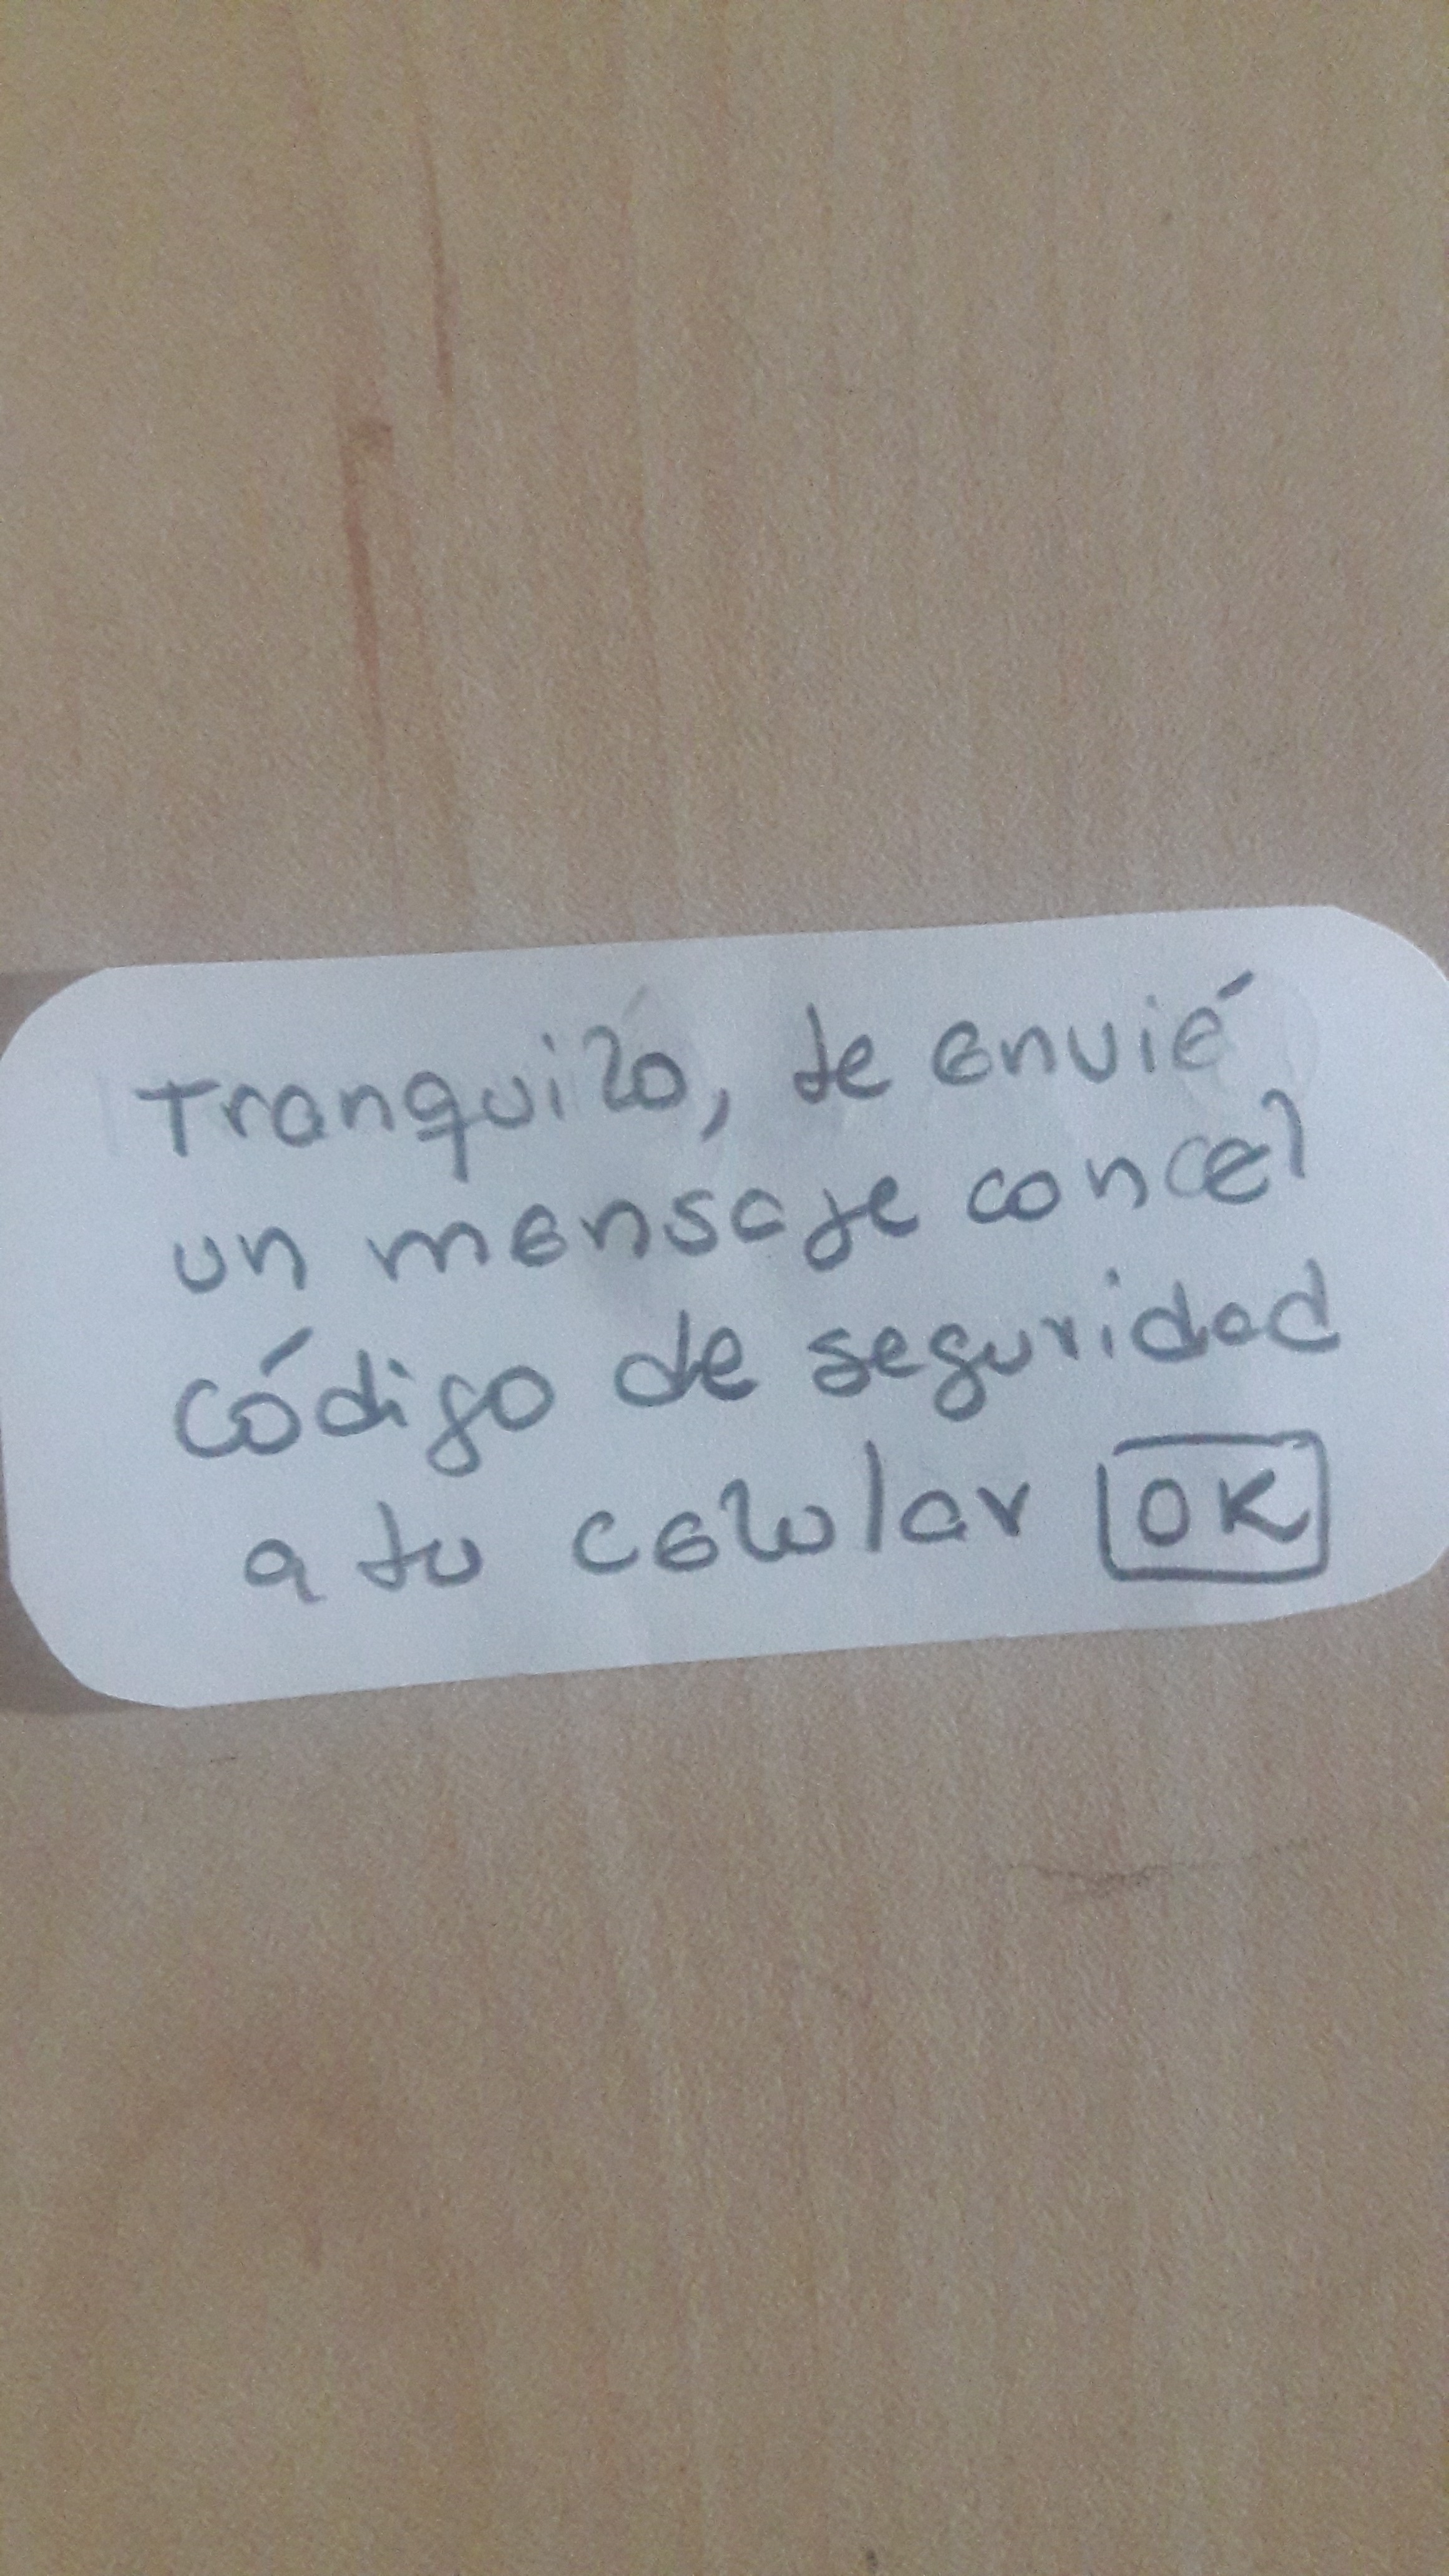 Tranquilo, te envié
un mensaje con el
código de seguridad
a tu celular OK